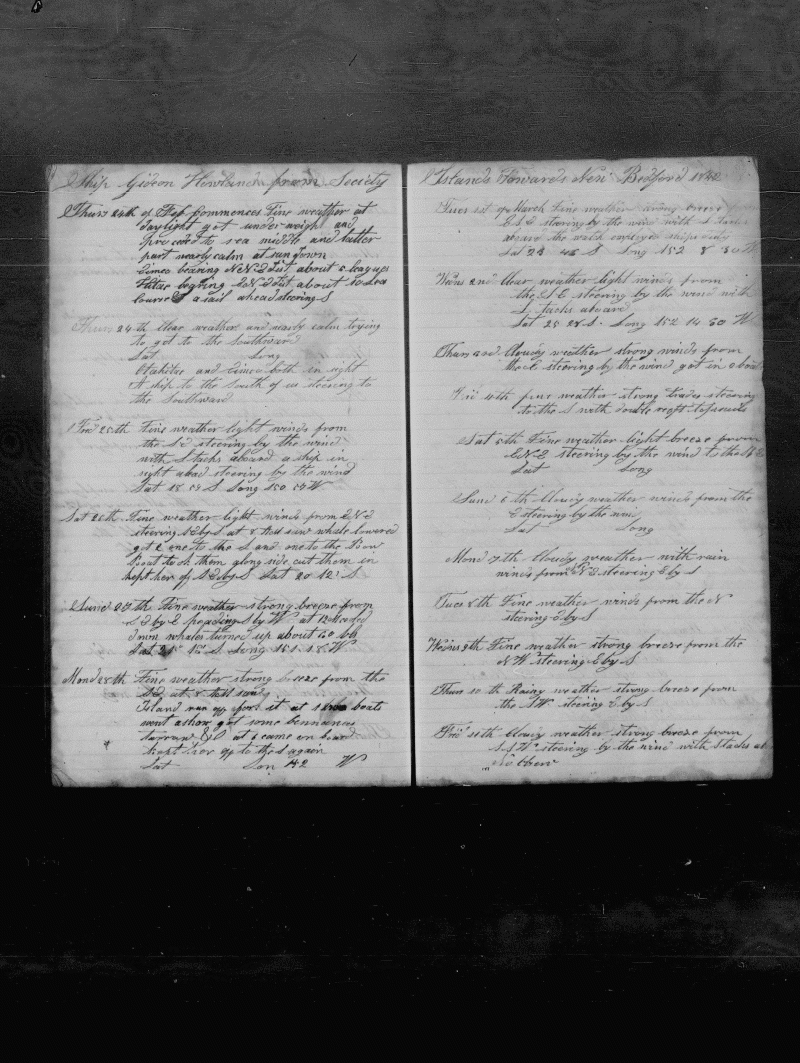 Ship Gideon Howland from Society
Thurs 24th of Feb Commences Fine weather at
daylight got under weigh and
proceeded to sea middle and latter
part nearly calm at sun down
Eimeo bearing N N E Dist about 5 leagues
bearing E N E Dist about 10 Lea
a sail ahead steering S
Thurs 24 th Clear weather and nearly calm trying
to get to the Southward
Lat Long
Otahitae and Eimeo both in sight
A ship to the South of us steering to
the Southward
Fri 25th Fine weather light winds from
the S E steering by the wind
with S tacks aboard a ship in
sight ahead steering by the wind
Lat 18 S Long 150 W
Sat 26th Fine weather light winds from E N E
steering S E by S at 8 saw whale lowered
got 2 one to the S and one to the Bow
Boat took them along side cut them in
kept her of S E by S Lat 20 12 S
Sund 27 th Fine weather strong breeze from
S E by E heading S by W at 12
down whales turned up about 60 bb
Lat 21 S Long 151 18 W
Mond 28th Fine weather strong breeze from the
at 8 AM saw
Island run up for it at boats
went ashore got some bennanas
at 6 came on board
kept her up to the S again
Lat Lon 142 W
Islands Towards New Bedford 1842
Tues 1st of March Fine weather strong breeze from
E S E steering by the wind with S tacks
aboard the watch employed
Lat 23 S Long 152 8 30 W
Wens 2nd Clear weather light winds from
the S E steering by the wind with
S tacks aboard
Lat 25 28 S Long 152 14 30 W
Thurs 3rd Cloudy weather strong winds from
the E steering by the wind got in a boat
Fri 4th fine weather strong trades steering
to the S with double reeft topsails
Sat 5th Fine weather light breeze from
E N E steering by the wind to the
Lat Long
Sund 6 th Cloudy weather winds from the
E steering by the wind
Lat Long
Mond 7th Cloudy weather with rain
winds from N E steering E by S
Tues 8th Fine weather winds from the N
steering E by S
Wens 9th Fine weather strong breeze from the
N W steering E by S
Thurs 10 th Rainy weather strong breeze from
the S W steering E by S
Fri 11th Cloudy weather strong breeze from
S S W steering by the wind with S tacks ab
No Obser